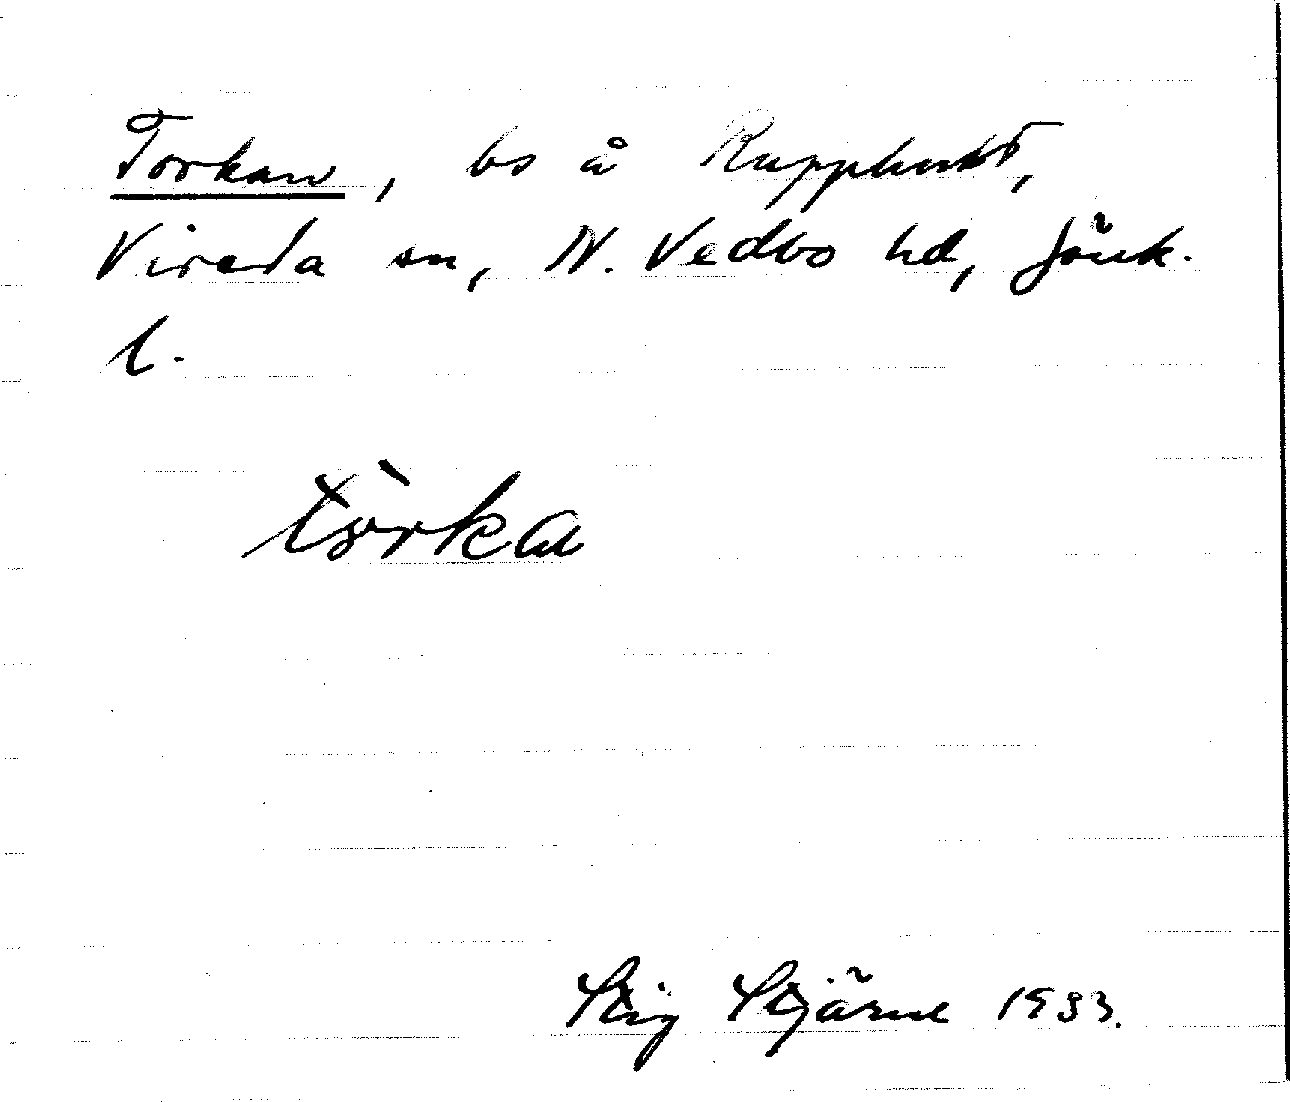 Torkan, bs å Rupphult,
Vireda sn, N. Vedbo hd, Jönk.
l.
tòrka
Stig Stjärne 1933.